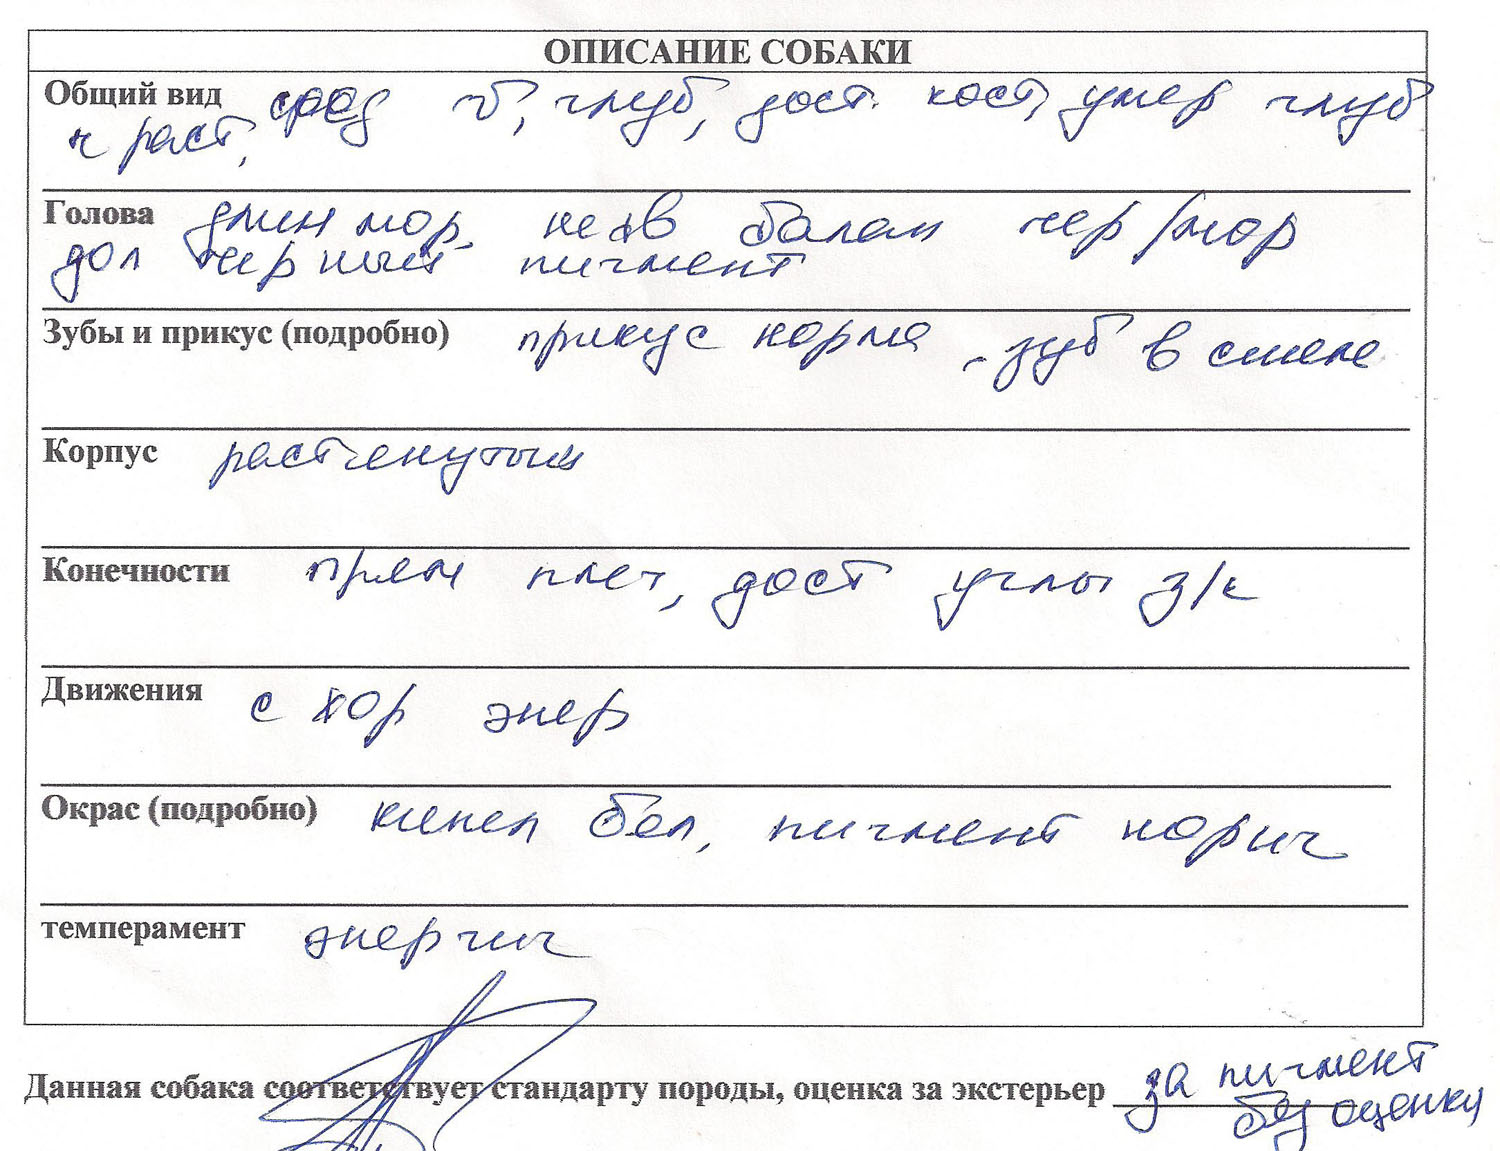 ОПИСАНИЕ СОБАКИ
Общий вид сред т, глуб, дост. кост, умер глуб
к раст,
Голова длин мор, балан чер/мор
дол черный пигмент
Зубы и прикус (подробно) прикус норма, зуб в смене
Корпус растянутый
Конечности прям плеч, дост углы з/к
Движения с хор энер
Окрас (подробно) кипел бел, пигмент корич
темперамент энергич
Данная собака соответствует стандарту породы, оценка за экстерьер за пигмент
без оценки